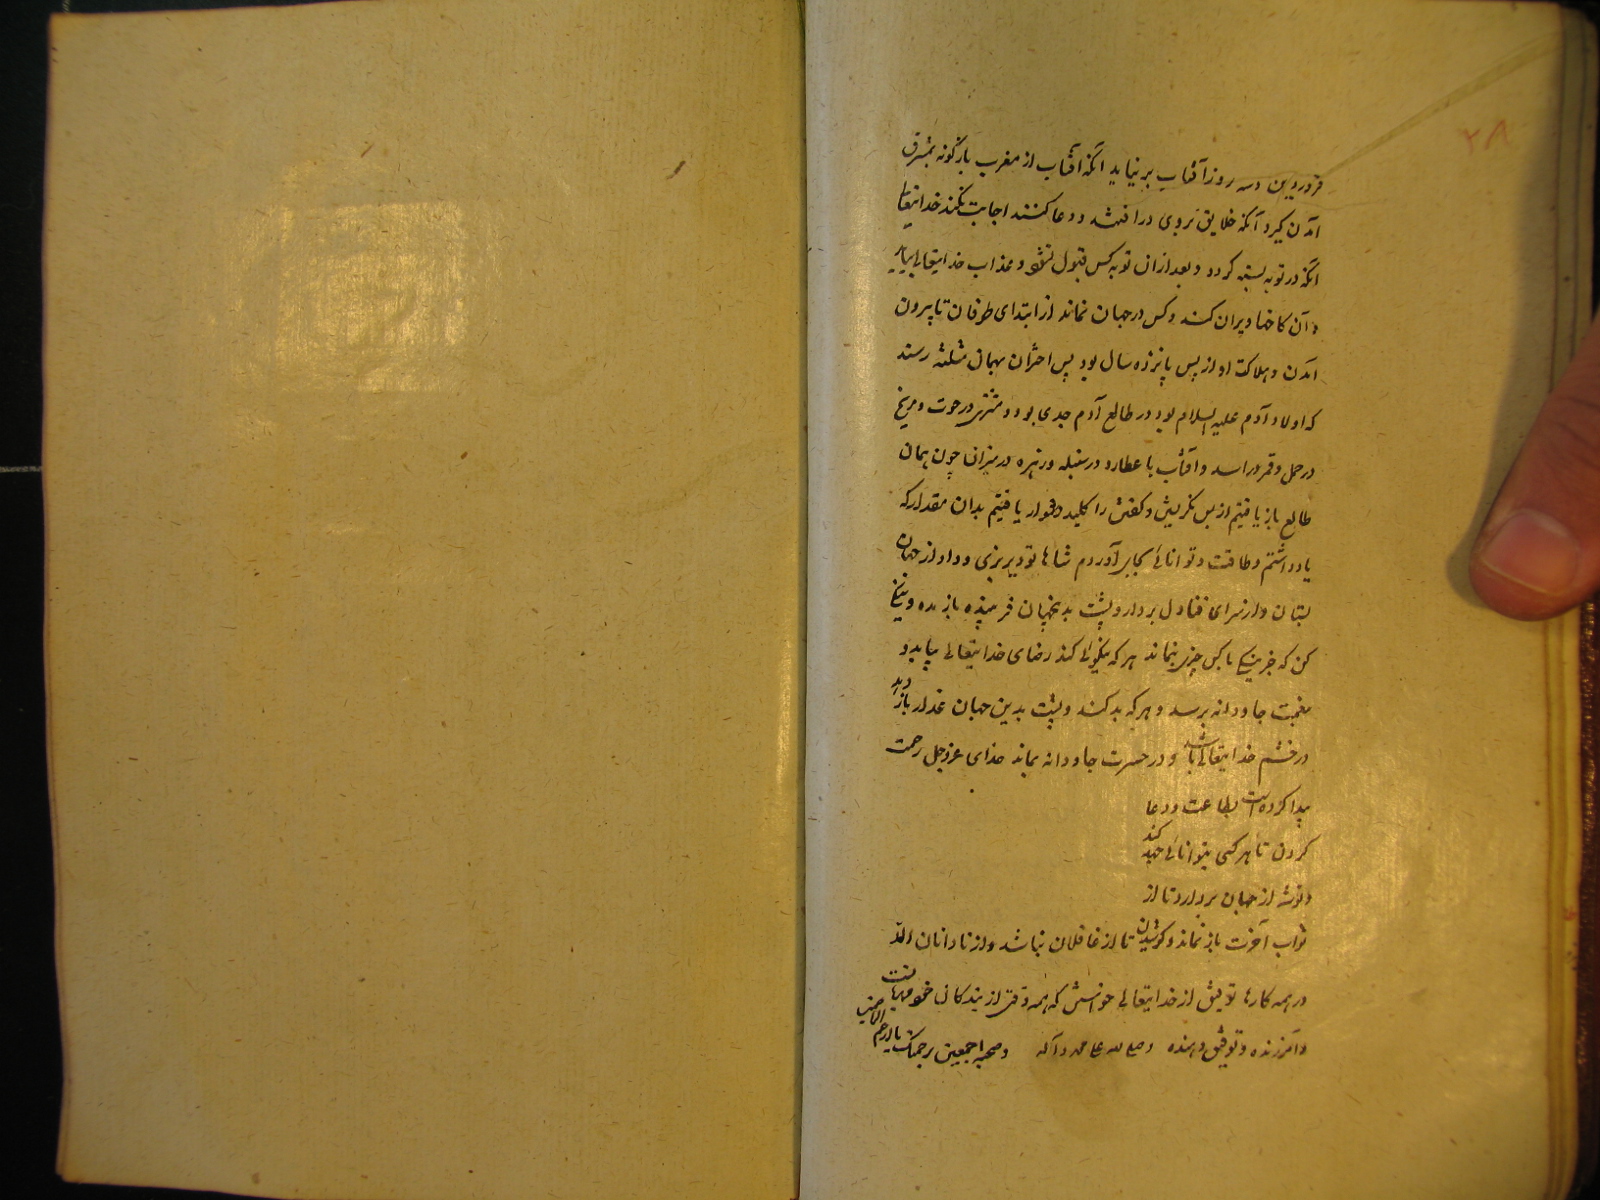 ۲۸
فروردین و سه روز آفتاب برنیاید آنگه آفتاب از مغرب بازگونه بمشرق
آمدن گیرد آنگه خلایق بروی درافتند و دعا کنند اجابت نکند خدایتعالی
آنگه در توبه بسته گردد و بعد از ان توبه کس قبول نشود و عذاب خدایتعالی بیاید
و آن کاخها ویران کند و کس در جهان نماند از ابتدای طوفان تا بیرون
آمدن و هلاکت او از پس پانزده سال بود پس اختران بهمان مثلثه رسند
که اولاد آدم علیه السلام بود در طالع آدم جدی بود و مشتری در حوت و مریخ
در حمل و قمر در اسد و آفتاب با عطارد در سنبله و زهره در میزان چون همان
طالع باز یافتیم از پس نگریش و کفتن را کلید دشوار یافتیم بدان مقدار که
یاد داشتم و طاقت و توانائی بجای آوردم شاها تو دیر بزی و داد از جهان
بستان و از سرای فنا دل بردار و پشت بدین جهان فریبنده باز ده و نیکی
کن که جز نیکی با کس چیزی نماند هر که نیکوئی کند رضای خدایتعالی بیابد و
بنعمت جاودانه برسد و هر که بد کند و پشت بدین جهان غدار باز دهد
در خشم خدایتعالی باشد و در حسرت جاودانه بماند خدای عزوجل رحمت
پیدا کرده است بطاعت و دعا
کردن تا هر کسی بتوانائی جهد کند
و توشه از جهان بردارد تا از
ثواب آخرت باز نماند و کوشیدن تا از غافلان نباشد و از نادانان
در همه کارها توفیق از خدایتعالی خواستن که همه وقتی از بندگان خشنود
و آمرزنده و توفیق دهنده و صلی الله علی محمد و آله و صحبه اجمعین برحمتک یا ارحم الراحمین